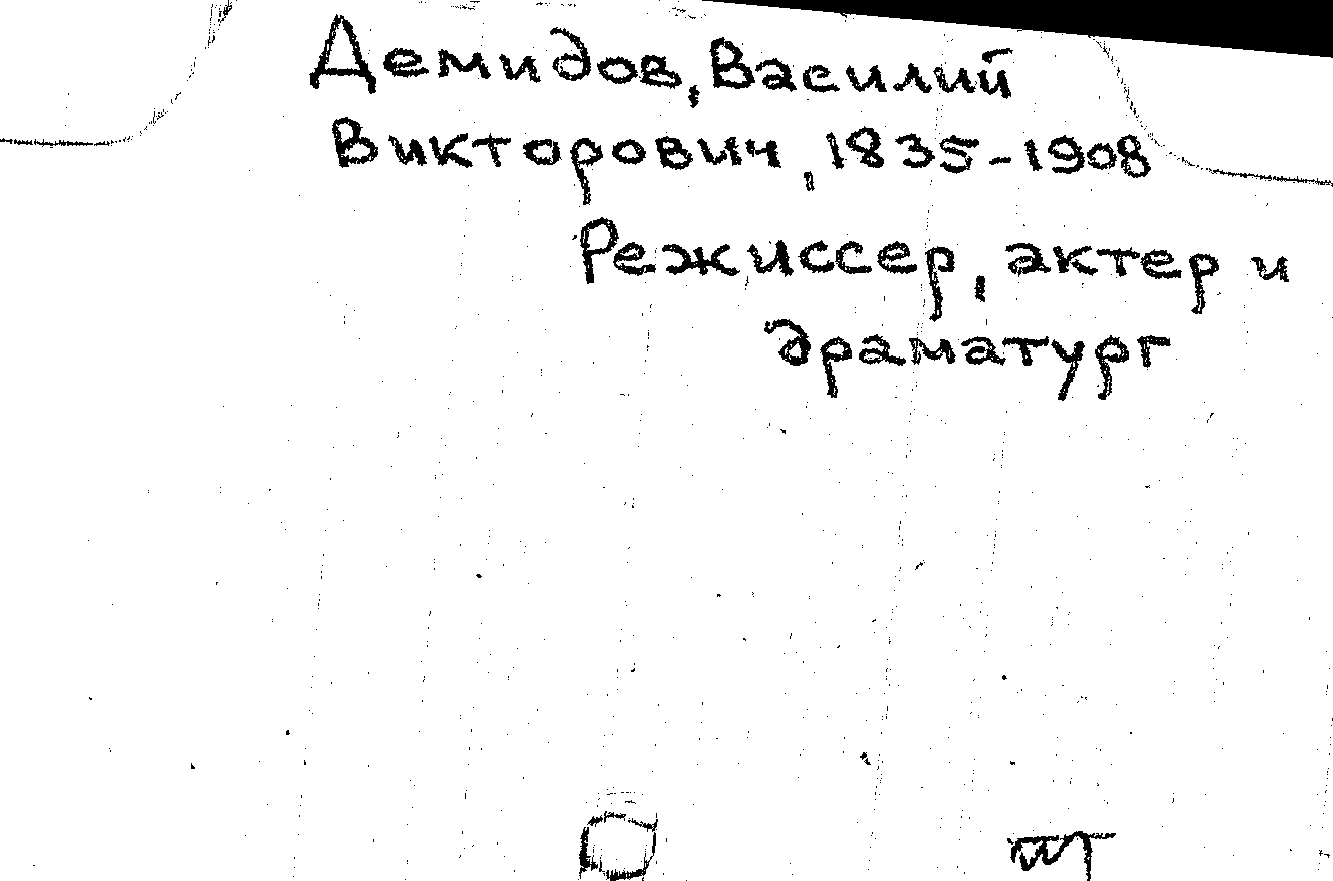 Демидов, Василий
Викторович, 1835-1908
Режиссер, актер и
драматург